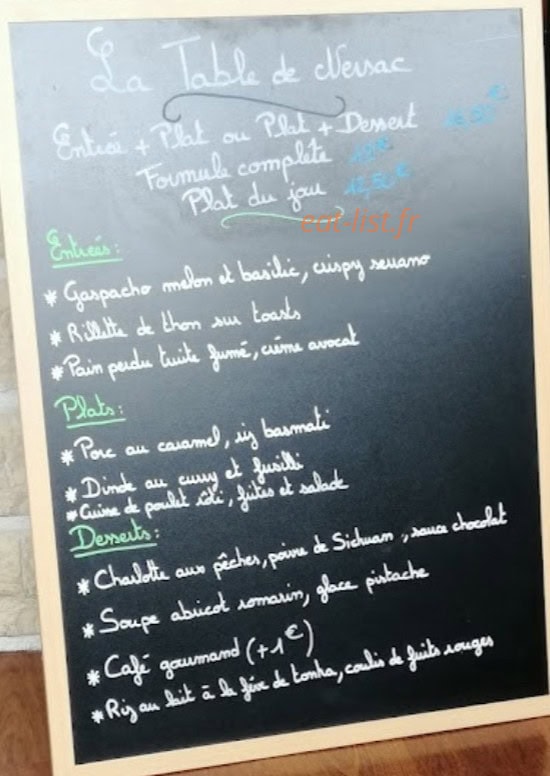 La Table de Nersac
Entrée + Plat ou Plat + Dessert 16,50€
Formule complète 19€
Plat du jour 12,50€
eat-list.fr
Entrées:
* Gaspacho melon et basilic, crispy serrano
* Rillette de thon sur toasts
* Pain perdu truite fumé, crème avocat
Plats:
* Porc au caramel, riz basmati
* Dinde au curry et fusilli
* Cuisse de poulet rôti, frites et salade
Desserts:
* Charlotte aux pêches, poivre de Sichuam, sauce chocolat
* Soupe abricot romarin, glace pistache
* Café gourmand (+1€)
* Riz au lait à la fève de tonka, coulis de fruits rouges